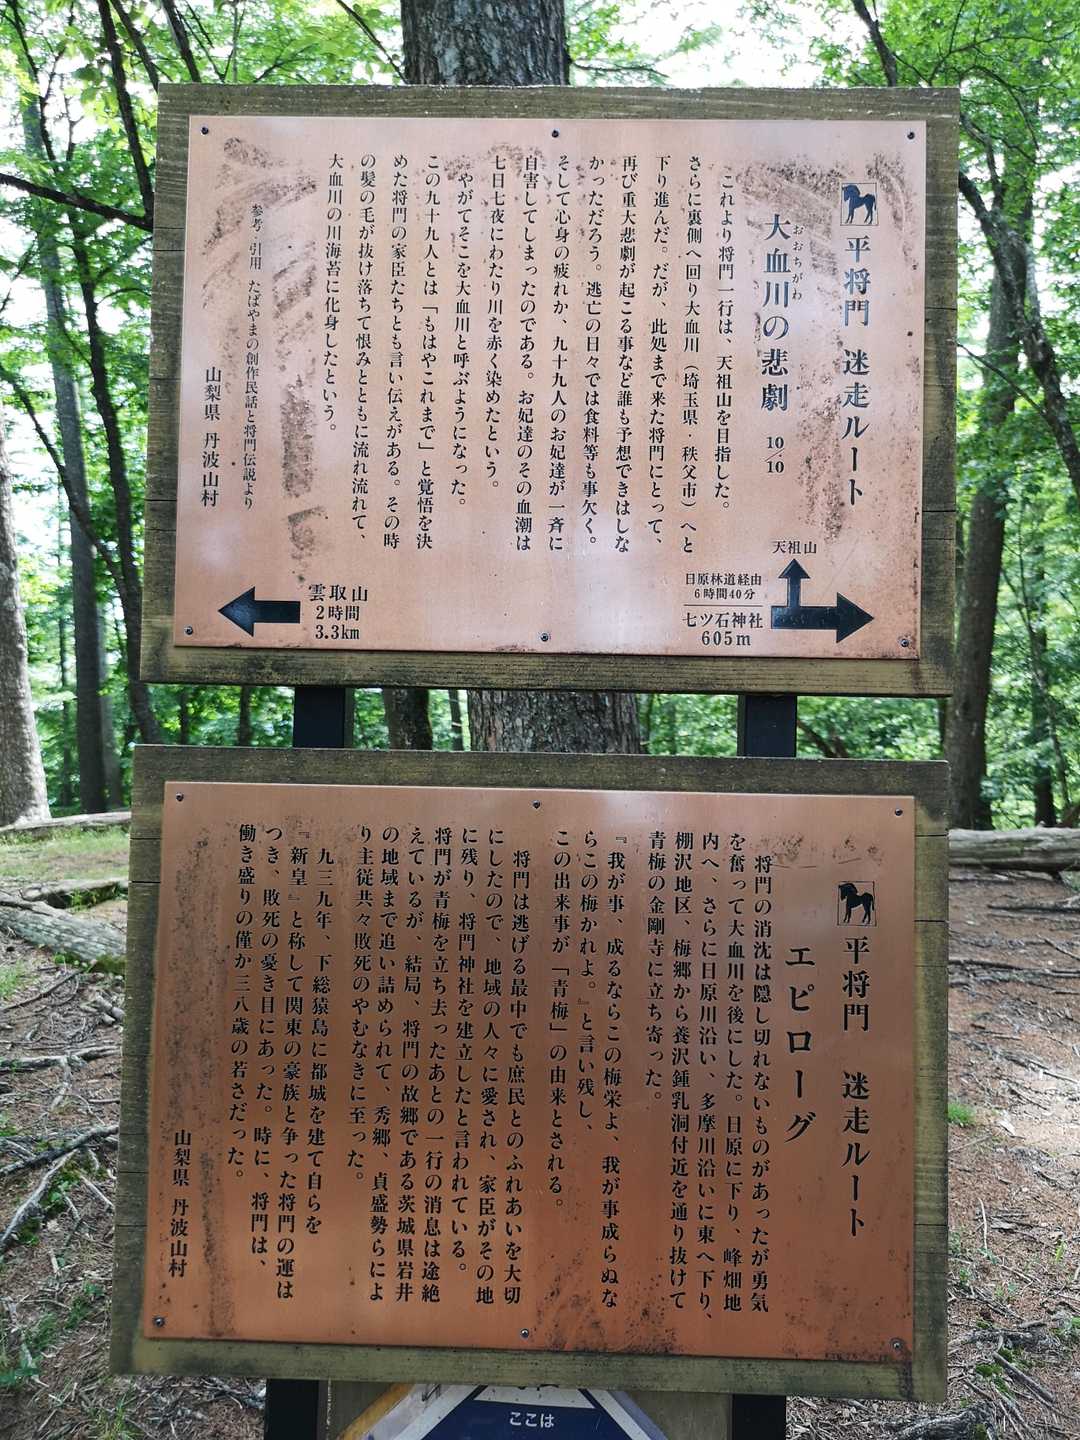 平将門 迷走ルート
大血川の悲劇 10/10
おおちがわ
これより将門一行は、天祖山を目指した。
さらに裏側へ回り大血川（埼玉県・秩父市）へと
下り進んだ。だが、此処まで来た将門にとって、
再び重大悲劇が起こる事など誰も予想できはしな
かっただろう。逃亡の日々では食料等も事欠く。
そして心身の疲れか、九十九人のお妃達が一斉に
自害してしまったのである。お妃達のその血潮は
七日七夜にわたり川を赤く染めたという。
やがてそこを大血川と呼ぶようになった。
この九十九人とは「もはやこれまで」と覚悟を決
めた将門の家臣たちとも言い伝えがある。その時
の髪の毛が抜け落ちて恨みとともに流れ流れて、
大血川の川海苔に化身したという。
参考・引用 たばやまの創作民話と将門伝説より
山梨県 丹波山村
天祖山
日原林道経由
6時間40分
七ツ石神社
605m
雲取山
2時間
3.3km
平将門 迷走ルート
エピローグ
将門の消沈は隠し切れないものがあったが勇気
を奮って大血川を後にした。日原に下り、峰畑地
内へ、さらに日原川沿い、多摩川沿いに東へ下り、
棚沢地区、梅郷から養沢鍾乳洞付近を通り抜けて
青梅の金剛寺に立ち寄った。
『我が事、成るならこの梅栄よ、我が事成らぬな
らこの梅かれよ。』と言い残し、
この出来事が「青梅」の由来とされる。
将門は逃げる最中でも庶民とのふれあいを大切
にしたので、地域の人々に愛され、家臣がその地
に残り、将門神社を建立したと言われている。
将門が青梅を立ち去ったあとの一行の消息は途絶
えているが、結局、将門の故郷である茨城県岩井
の地域まで追い詰められて、秀郷、貞盛勢らによ
り主従共々敗死のやむなきに至った。
九三九年、下総猿島に都城を建て自らを
『新皇』と称して関東の豪族と争った将門の運は
つき、敗死の憂き目にあった。時に、将門は、
働き盛りの僅か三八歳の若さだった。
山梨県 丹波山村
ここは